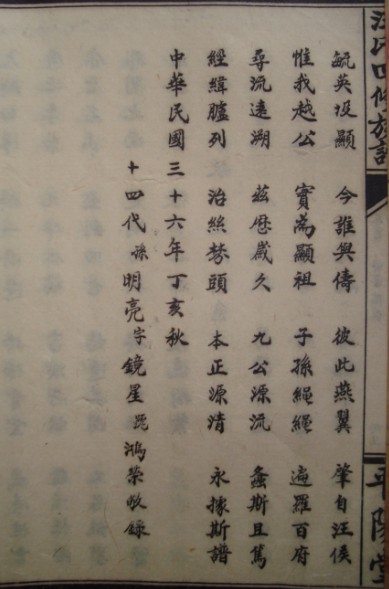 汪氏四修族譜
平陽堂
毓英圾顯 今誰與儔 彼此燕翼 肇自汪侯
惟我越公 實為顯祖 子孫繩繩 遍羅百府
尋流遠溯 茲歷歲久 九公源流 螽斯且篤
經緯臚列 治絲棼頭 本正源清 永據斯譜
中華民國三十六年丁亥秋
十四代孫明亮字鏡星 鴻榮收錄